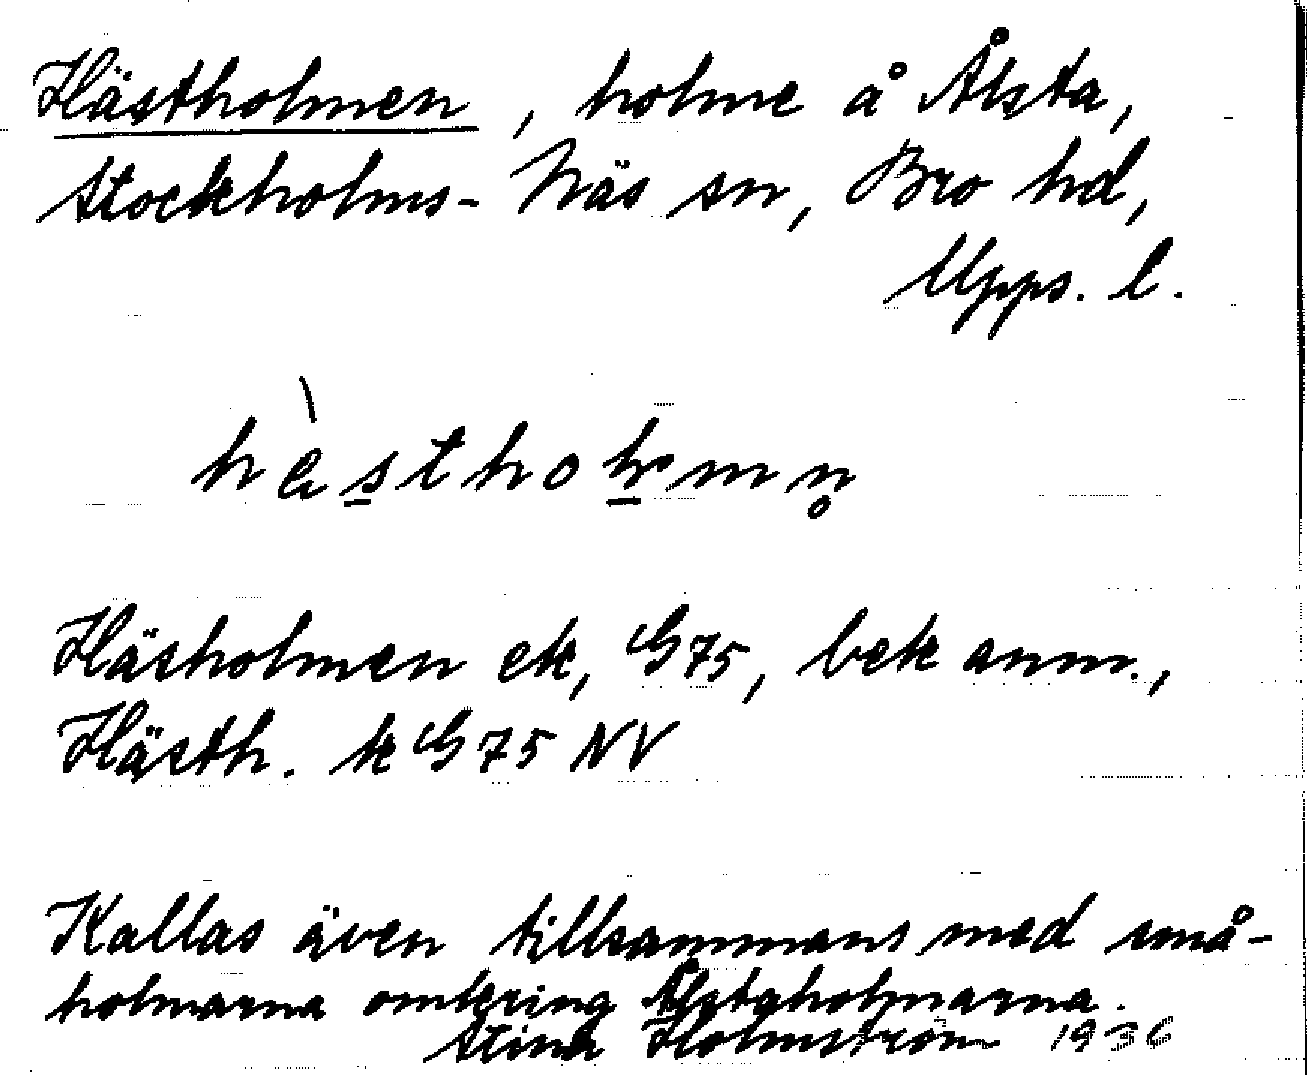 Hästholmen, holme å Ålsta,
Stockholms-Näs sn, Bro hd,
Upps. l.
Häsholmen ek, G75, bek anm.,
Hästh. k G75 NV
Kallas även tillsammans med små-
holmarna omkring Ålstaholmarna.
Stina Holmström 1936